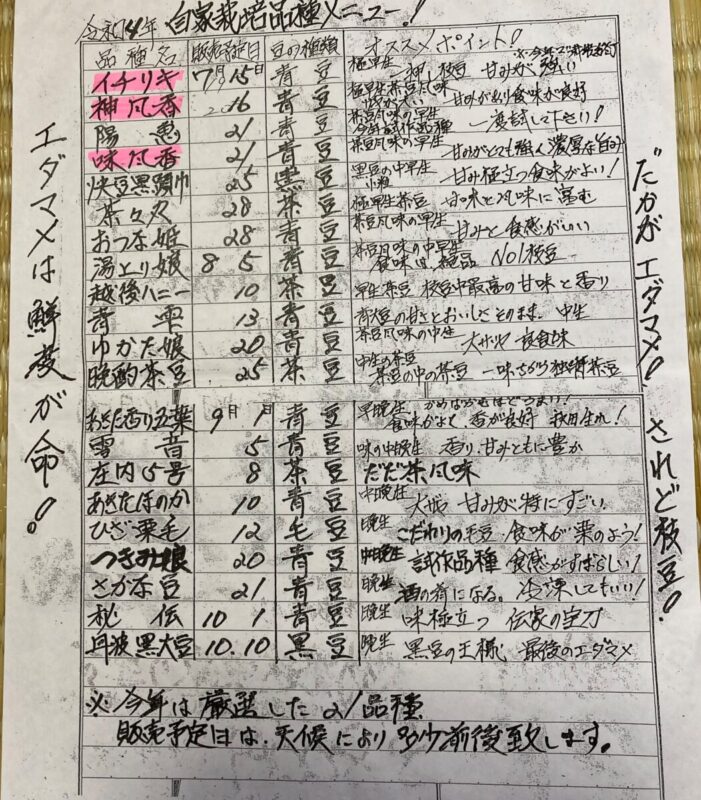 令和4年 自家栽培品種メニュー!
品種名 販売予定日 豆の種類 オススメポイント!
イチリキ 7月15日 青豆 極早生 一押し枝豆 甘みが強い
神風香 16 青豆 極早生茶豆風味 甘みがあり食味が良好
陽恵 21 青豆 茶豆風味の早生 今年試作品種 一度試して下さい!
味風香 21 青豆 茶豆風味の早生 甘みがとても強く濃厚な旨み
快豆黒頭巾 25 黒豆 黒豆の中早生 小粒 甘み極立つ食味がよい!
茶々丸 28 茶豆 極早生茶豆 甘味と風味に富む
おつな姫 28 青豆 茶豆風味の早生 甘みと食感がいい
湯上り娘 8 5 青豆 茶豆風味の中早生 食味は、絶品 No1枝豆
越後ハニー 10 茶豆 早生茶豆 枝豆中最高の甘味と香り
青雫 13 青豆 青大豆の甘さとおいしさそのまま。中生
ゆかた娘 20 青豆 茶豆風味の中生 大サヤ 良食味
晩酌茶豆 25 茶豆 中生の茶豆 茶豆の中の茶豆 一味ちがう独特茶豆
あきた香り五葉 9月1日 青豆 早晩生 食味がよく、香が良好 秋田生れ!
雪音 5 青豆 味の中晩生 香り、甘みともに豊か
庄内5号 8 茶豆 だだ茶風味
あきたほのか 10 青豆 中晩生 大サヤ 甘みが特にすごい
ひざ栗毛 12 毛豆 晩生 こだわりの毛豆 食味が栗のよう!
つきみ娘 20 青豆 中晩生 試作品種 食感がすばらしい!
さかな豆 21 青豆 晩生 酒の肴になる。冷凍してもいい!
秘伝 10 1 青豆 晩生 味極立つ 伝家の宝刀
丹波黒大豆 10.10 黒豆 晩生 黒豆の王様 最後のエダマメ
※今年は厳選した21品種
販売予定日は、天候により多少前後致します。
エダマメは鮮度が命!
"たかがエダマメ! されど枝豆!